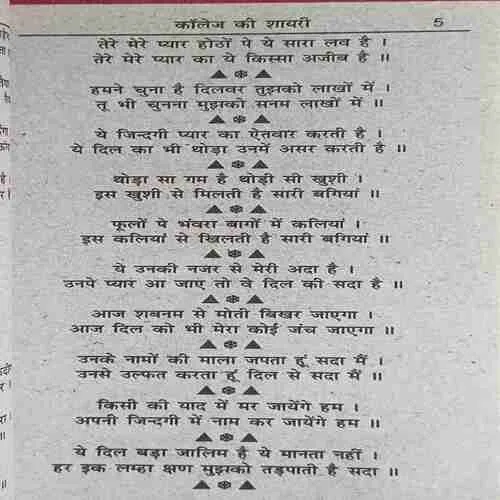 कॉलेज की शायरी 5
तेरे मेरे प्यार होठों पे ये सारा लव है ।
तेरे मेरे प्यार का ये किस्सा अजीब है ॥
हमने चुना है दिलवर तुझको लाखों में ।
तू भी चुनना मुझको सनम लाखों में ॥
ये जिन्दगी प्यार का ऐतवार करती है ।
ये दिल का भी थोड़ा उनमें असर करती है ॥
थोड़ा सा गम है थोड़ी सी खुशी ।
इस खुशी से मिलती है सारी बगियां ॥
फूलों पे भंवरा बागों में कलियां ।
इस कलियां से खिलती है सारी बगियां ॥
ये उनकी नजर से मेरी अदा है ।
उनपे प्यार आ जाए तो वे दिल की सदा है ॥
आज शबनम से मोती बिखर जाएगा ।
आज दिल को भी मेरा कोई जंच जाएगा ॥
उनके नामों की माला जपता हूं सदा मैं ।
उनसे उल्फत करता हूं दिल से सदा मैं ॥
किसी की याद में मर जायेंगे हम ।
अपनी जिन्दगी में नाम कर जायेंगे हम ॥
ये दिल बड़ा जालिम है ये मानता नहीं ।
हर इक लम्हा क्षण मुझको तड़पाती है सदा ॥